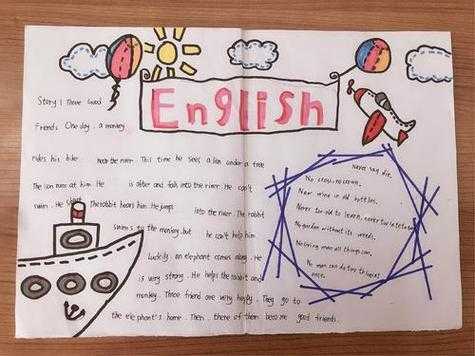 English
Story 1 Three Good
Friends One day, a monkey
rides his bike near the river. This time he sees a lion under a tree
The lion runs at him. He is afraid and falls into the river. He can't
swim. He The rabbit hears him. He jumps into the river. The rabbit
swims to the monkey, but he can't help him.
Luckily, an elephant comes along. He
is very strong. He helps the rabbit and
monkey. Three friend are very happy. They go to
the elephant's home. Then, there of them become good friends.
Never say die.
No cross, no crown.
New wine in old bottles.
Never too old to learn, never too late to
No garden without its weeds.
No living man all things can.
No man can do two things at
once.